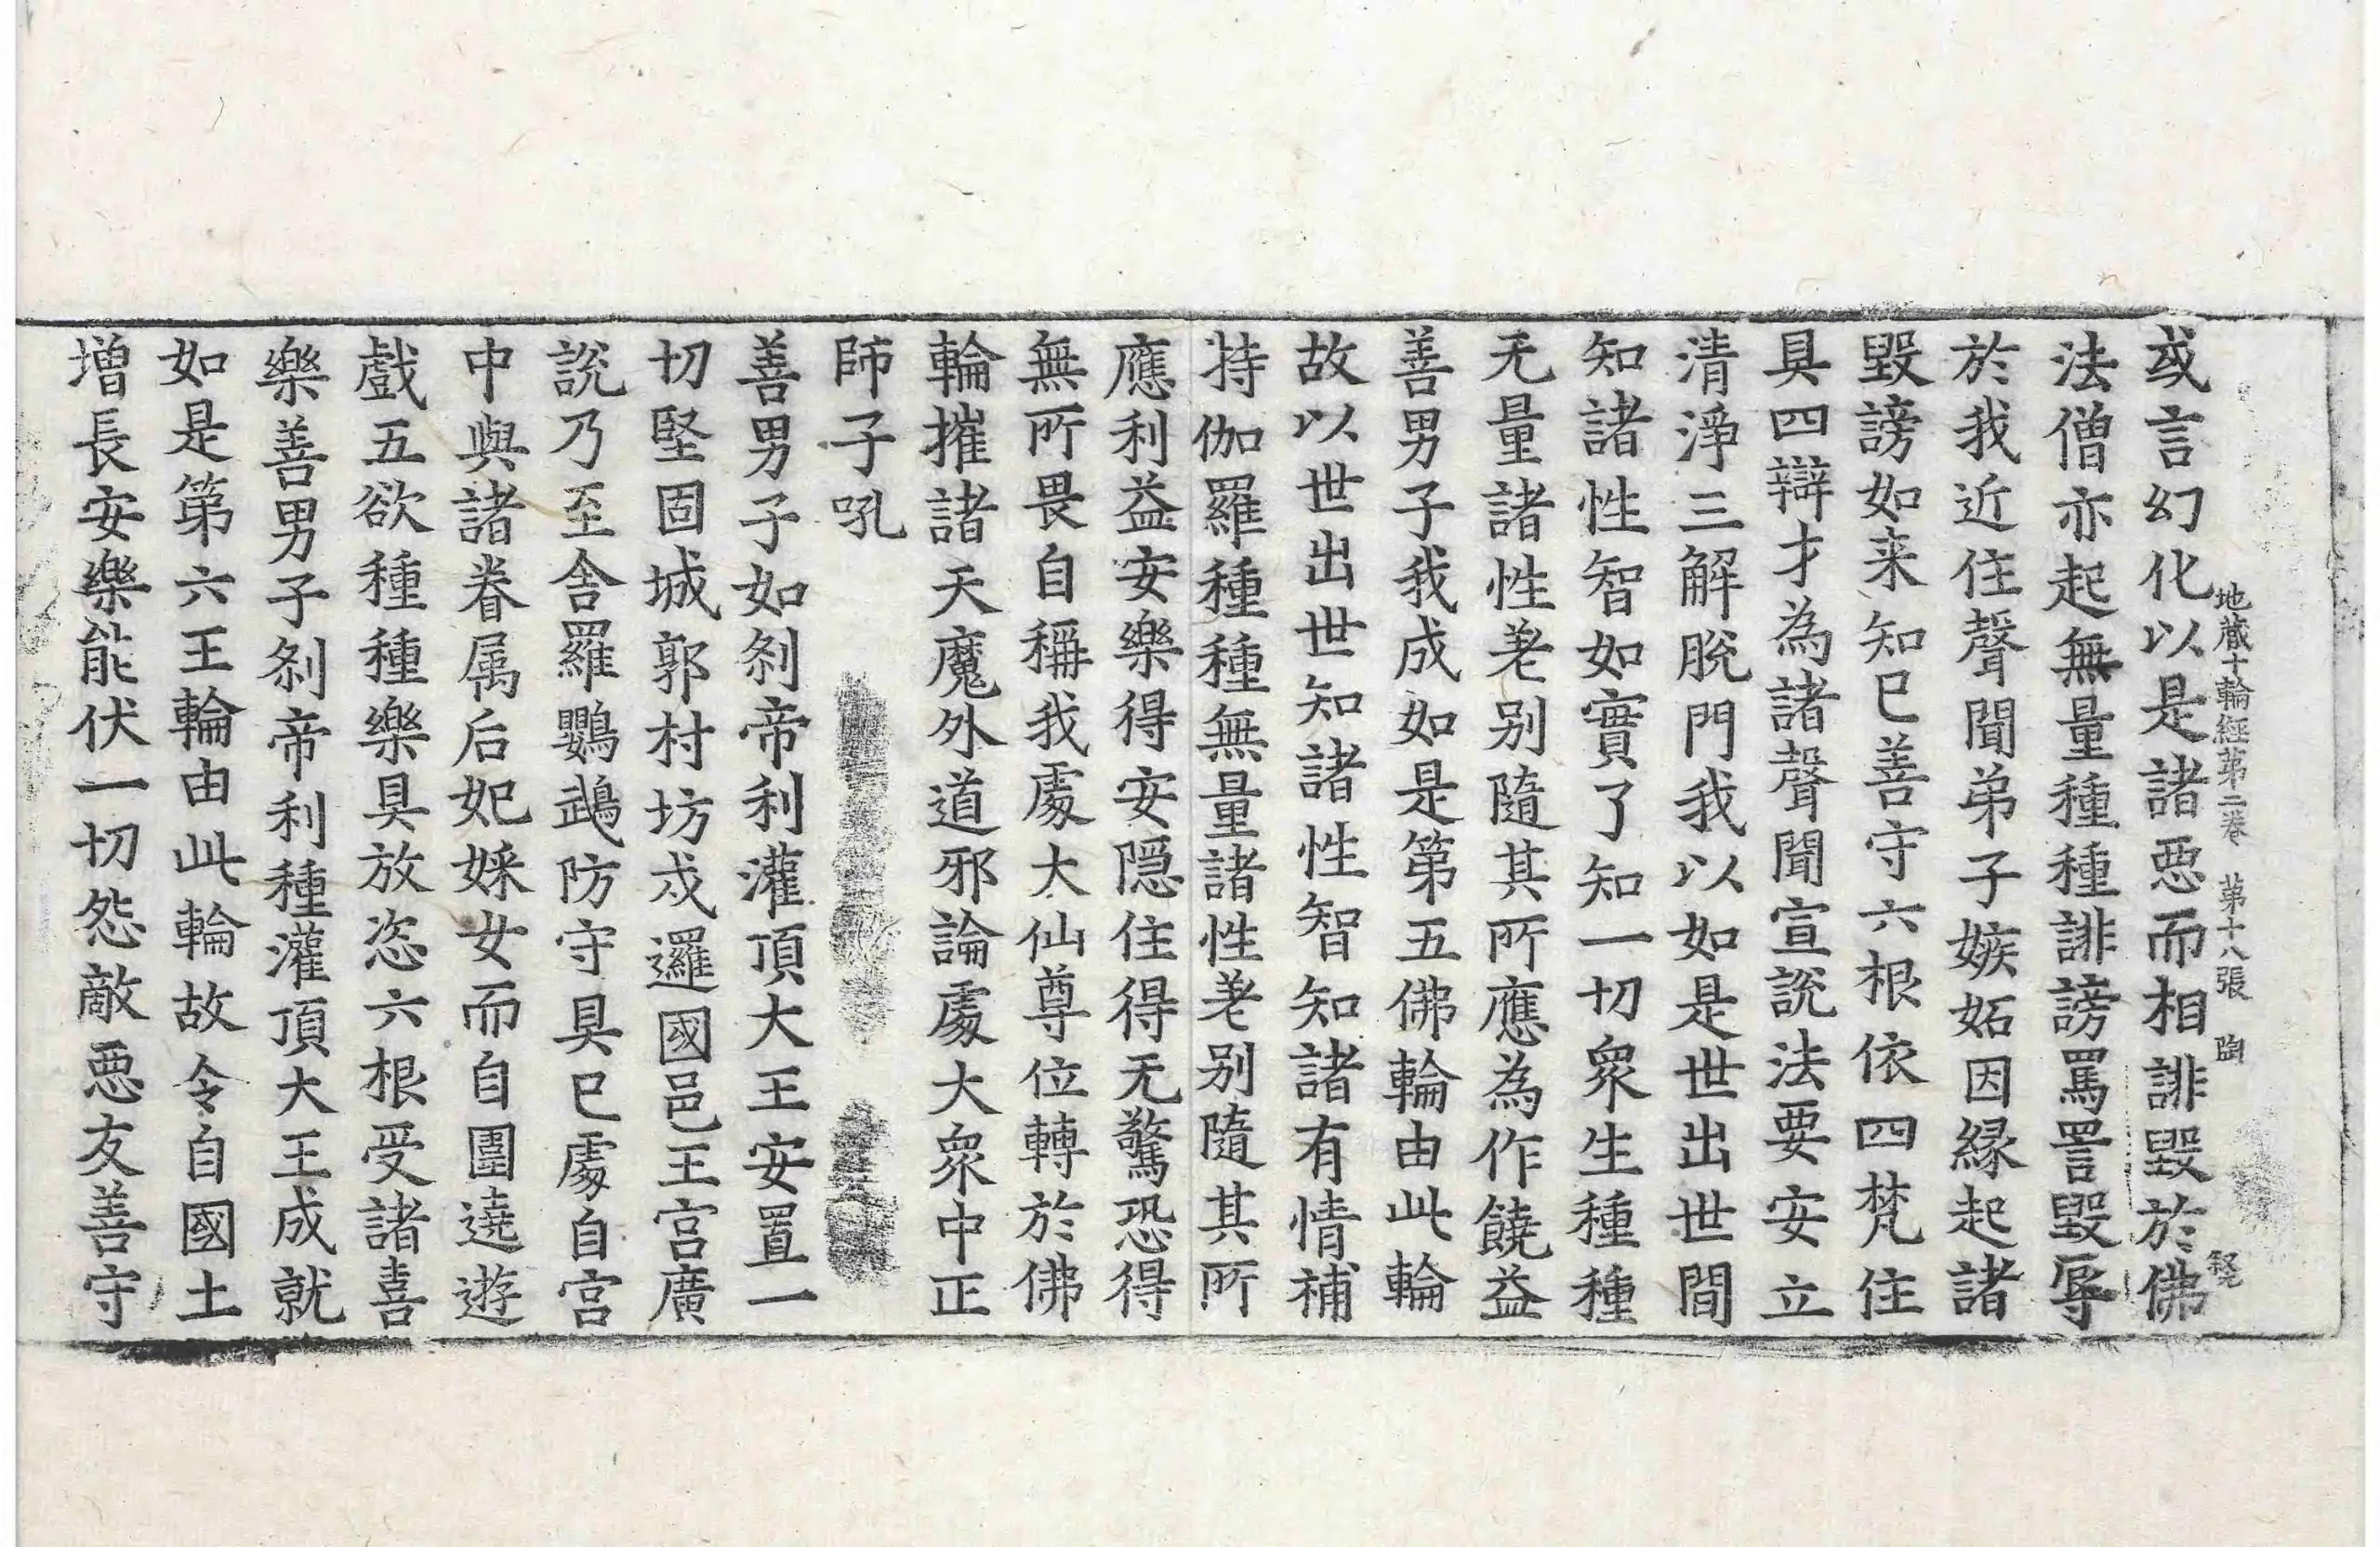 地蔵十輪經第二卷　第十八張　陶
或言幻化以是諸惡而相誹毀於佛
法僧亦起無量種種誹謗罵詈毀辱
於我近住聲聞弟子嫉妬因緣起諸
毀謗如来知已善守六根依四梵住
具四辯才為諸聲聞宣說法要安立
清淨三解脫門我以如是世出世間
知諸性智如實了知一切衆生種種
无量諸性差别隨其所應為作饒益
善男子我成如是第五佛輪由此輪
故以世出世知諸性智知諸有情補
特伽羅種種無量諸性差别隨其所
應利益安樂得安隱住得无驚恐得
無所畏自稱我處大仙尊位轉於佛
輪摧諸天魔外道邪論處大衆中正
師子吼
善男子如剎帝利灌頂大王安置一
切堅固城郭村坊戍邏國邑王宮廣
說乃至舍羅鸚鵡防守具已處自宮
中與諸眷属后妃婇女而自圍遶遊
戲五欲種種樂具放恣六根受諸喜
樂善男子剎帝利種灌頂大王成就
如是第六王輪由此輪故令自國土
增長安樂能伏一切怨敵惡友善守